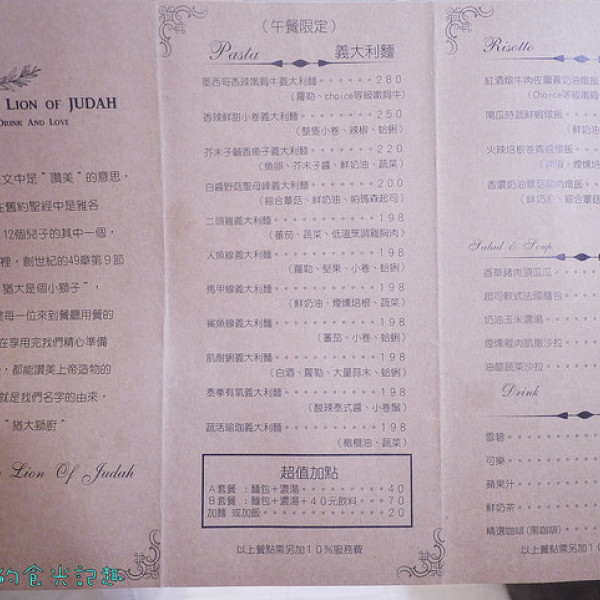 LION OF JUDAH
DRINK AND LOVE
文中是"讚美"的意思，
在舊約聖經中是雅各
12個兒子的其中一個，
裡，創世紀的49章第9節
猶大是個小獅子"，
每一位來到餐廳用餐的
在享用完我們精心準備
，都能讚美上帝造物的
就是我們名字的由來，
"猶大獅廚"
Lion Of Judah
（午餐限定）
Pasta 義大利麵
墨西哥香辣嫩肩牛義大利麵·······280
（蘿勒、choice等級嫩肩牛）
香辣鮮甜小卷義大利麵·······250
（整隻小卷、辣椒、蛤蜊）
芥末子鹹香魚子義大利麵·······220
（魚卵、芥末子醬、鮮奶油、蔬菜）
白醬野菇聖母峰義大利麵·······200
（綜合蕈菇、鮮奶油、帕瑪森起司）
二頭雞義大利麵·······198
（蕃茄、蔬菜、低溫烹調雞胸肉）
人魚線義大利麵·······198
（蘿勒、堅果、小卷、蛤蜊）
馬甲線義大利麵·······198
（鮮奶油、煙燻培根、蔬菜）
鯊魚線義大利麵·······198
（蕃茄、小卷、蛤蜊）
肌耐蜊義大利麵·······198
（白酒、蘿勒、大量蒜末、蛤蜊）
泰拳有氧義大利麵·······198
（酸辣泰式醬、小卷鬚）
蔬活瑜珈義大利麵·······198
（橄欖油、蔬菜）
超值加點
A套餐 ：麵包+濃湯·······40
B套餐 ：麵包+濃湯+40元飲料···70
加麵 或加飯·······20
以上餐點需另加10%服務費
Risotto
紅酒燉牛肉佐薑黃奶油燉飯
（Choice等級嫩肩
南瓜時蔬鮮蝦燉飯
（鮮奶
火辣培根卷青醬燉飯
香濃奶油蕈菇
Salad & Soup
香草豬肉頂瓜瓜
起司軟式法國麵包
奶油玉米濃湯
煙燻雞肉凱撒沙拉
油醋蔬菜沙拉
Drink
雪碧
可樂
蘋果汁
鮮奶茶
精選咖啡(黑咖啡)
以上餐點需另加10
的食光記趣